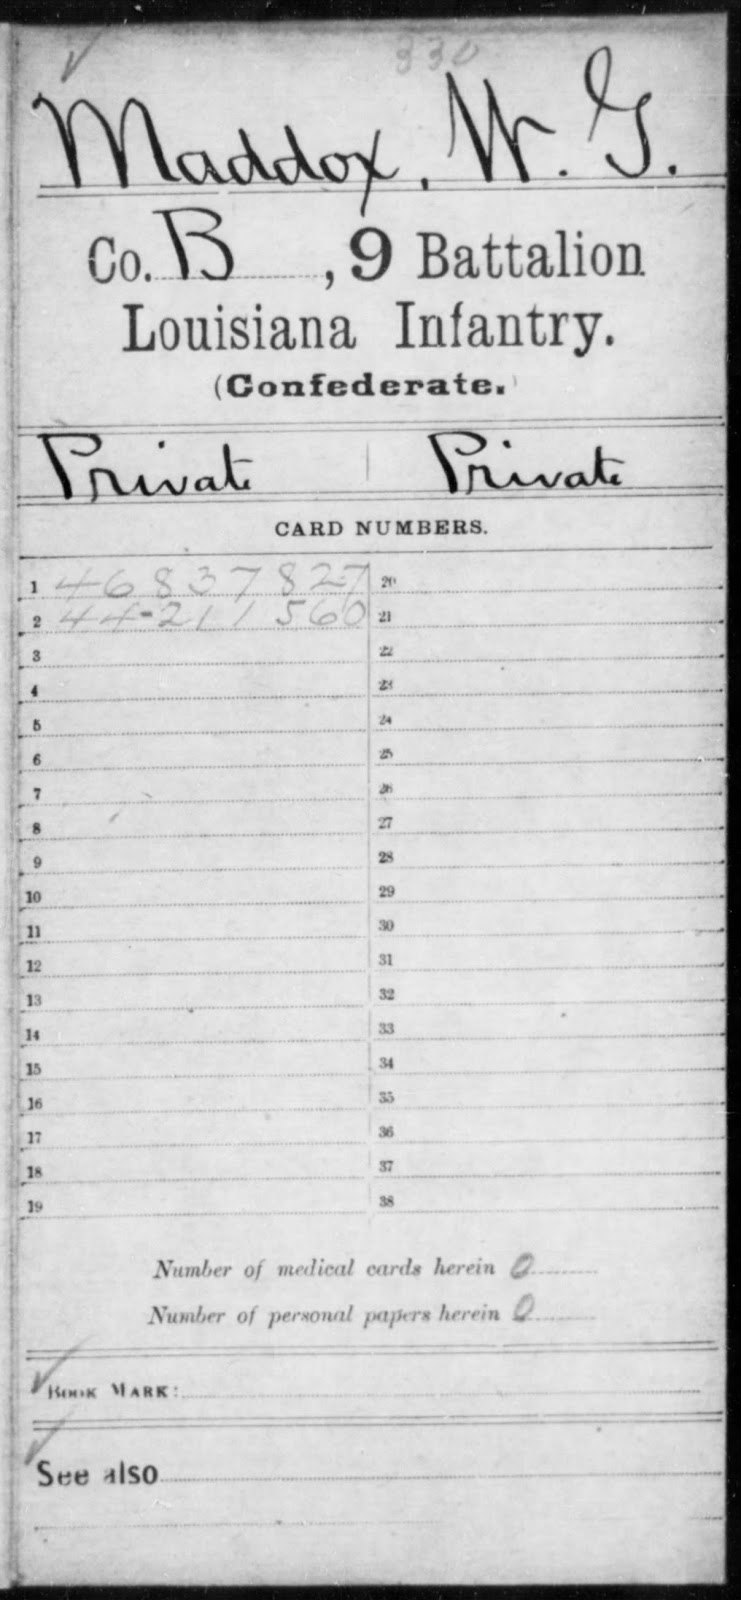 330
Maddox, W. G.
Co. B, 9 Battalion
Louisiana Infantry.
(Confederate.)
Private | Private
CARD NUMBERS.
1 46837827 20
2 44-211560 21
3 22
4 23
5 24
6 25
7 26
8 27
9 28
10 29
11 30
12 31
13 32
14 33
15 34
16 35
17 36
18 37
19 38
Number of medical cards herein 0
Number of personal papers herein 0
BOOK MARK:
See also